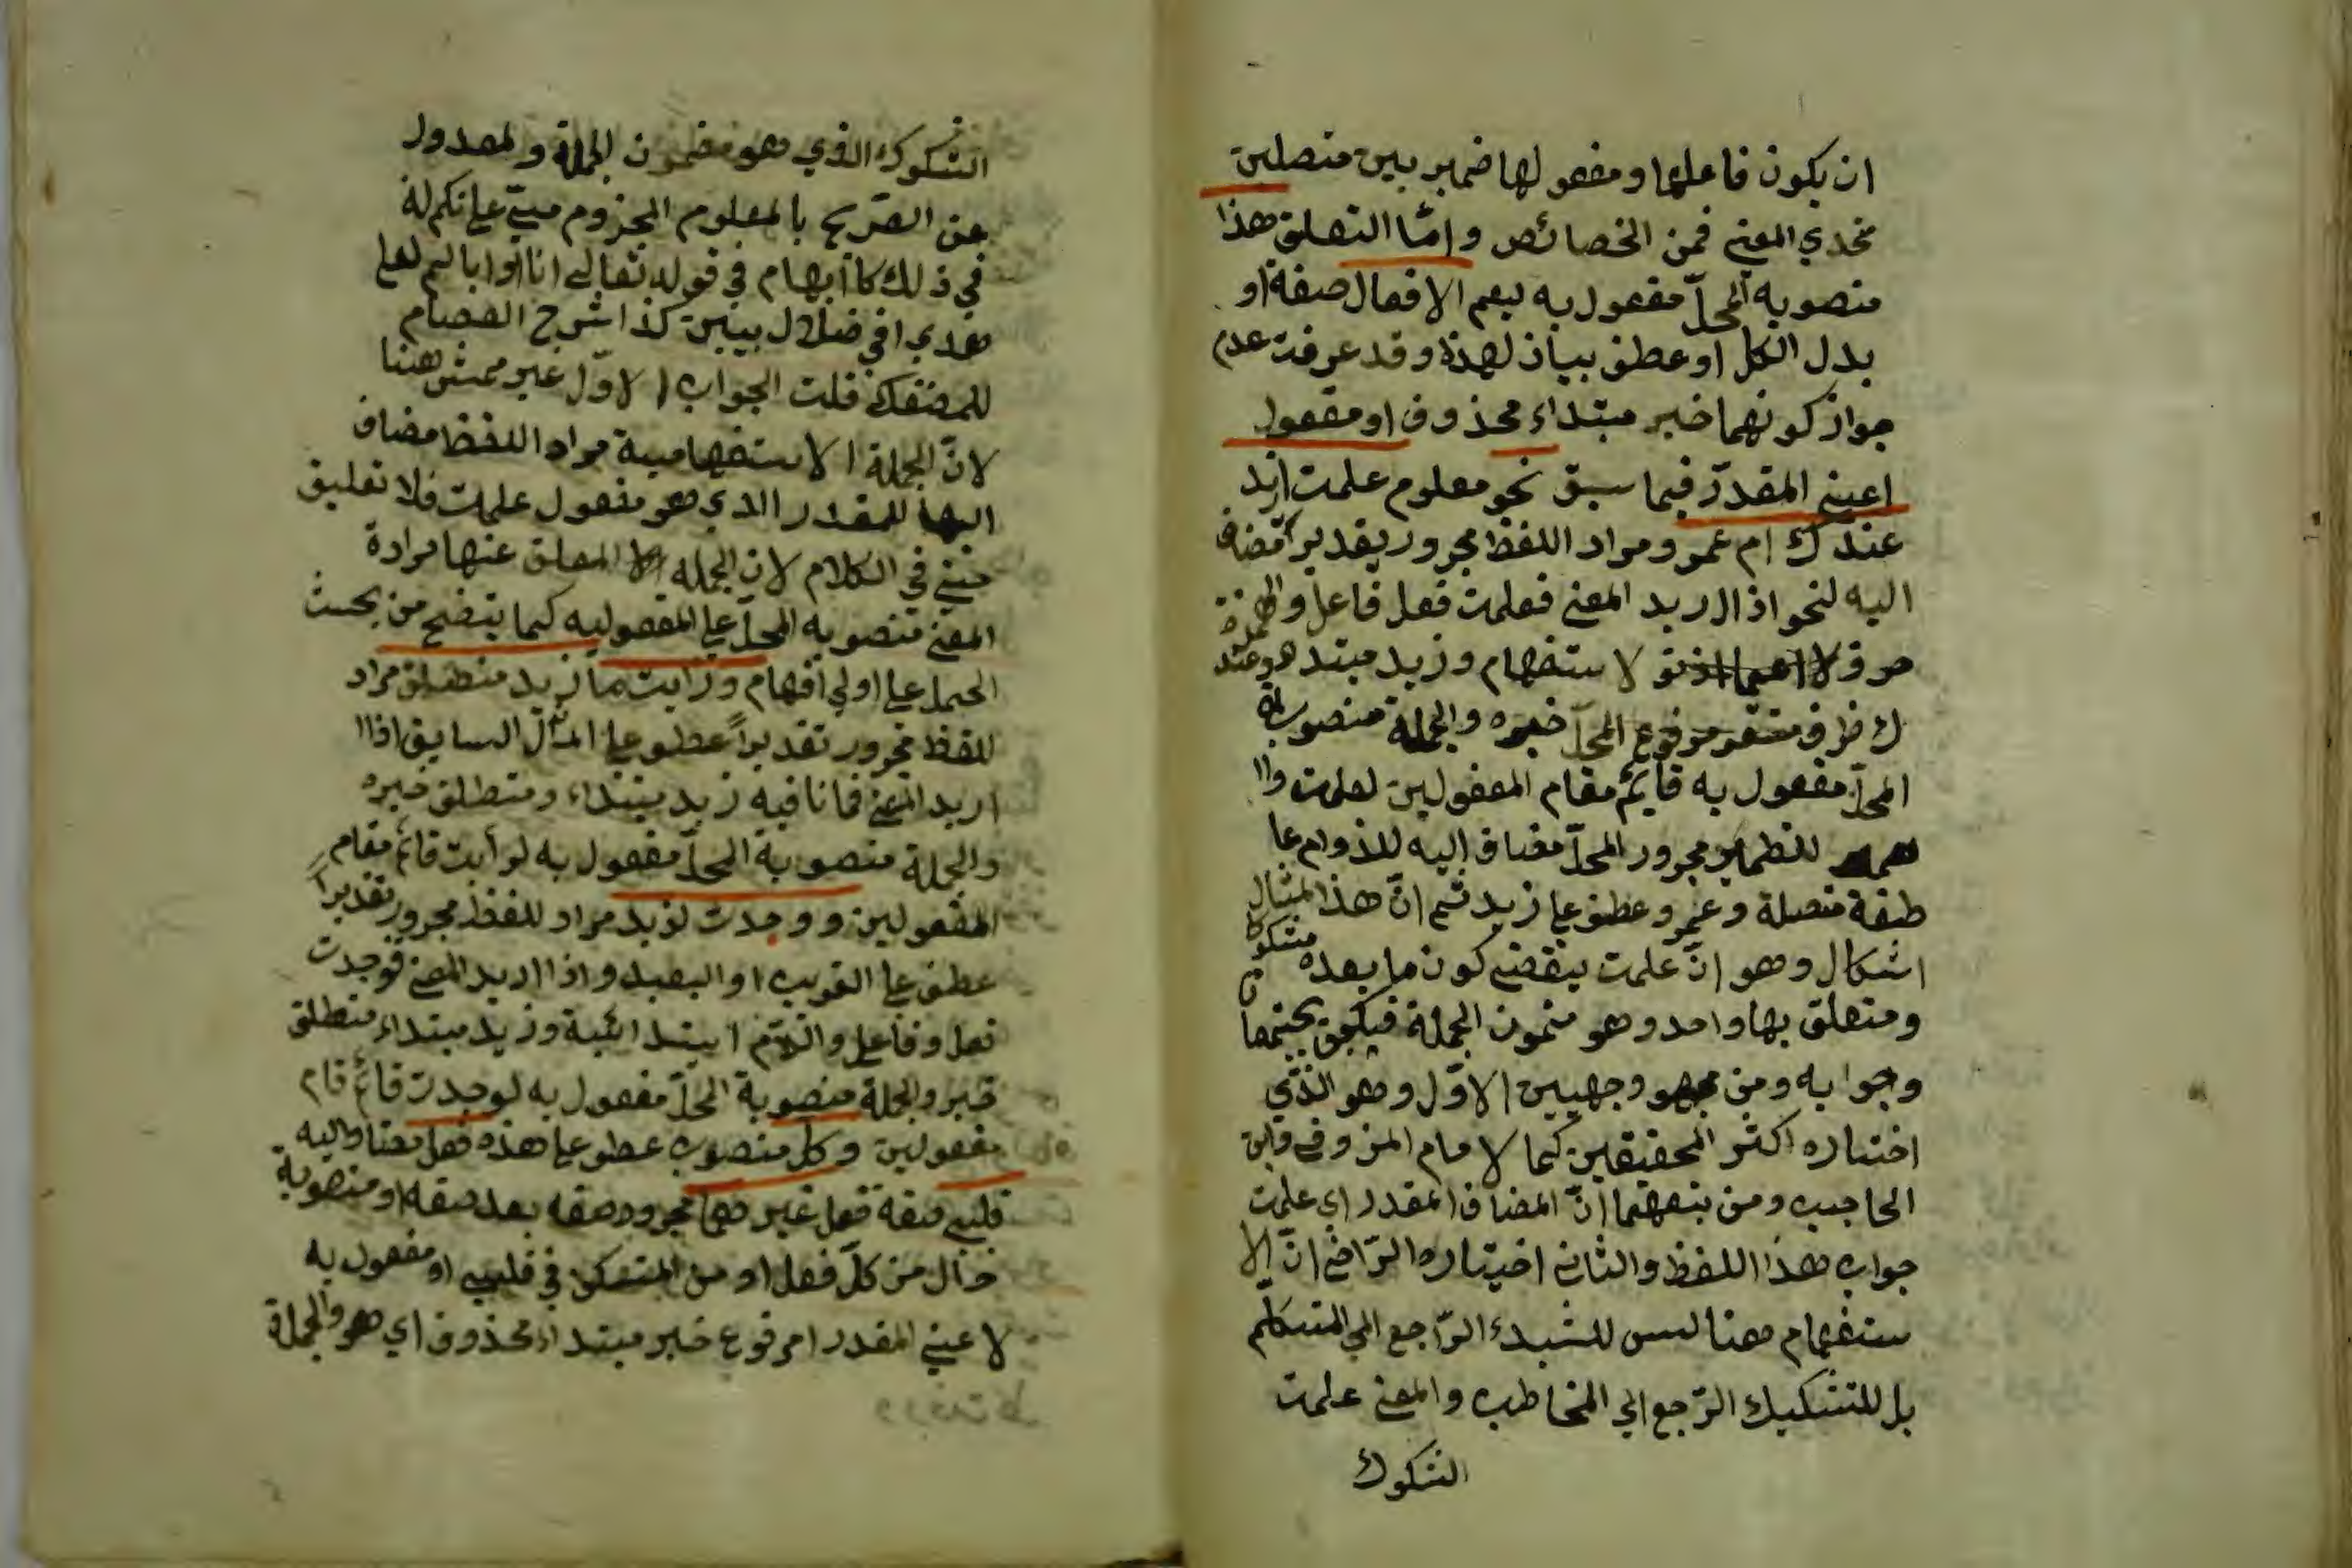 ان يكون فاعلها ومفعولها ضميريين متصلين
متحدي المعنى فمن الخصائص وامّا التعلق هذا
منصوبة المحلّ مفعول به ليعم الافعال صفة او
بدل الكل او عطف بيان لهذا وقد عرفت عدم
جواز كونهما خبر مبتداء محذوف او مفعول
اعني المقدّر فيما سبق نحو معلوم علمت ازيد
عندك ام عمرو مراد اللفظ مجرور تقديرا مضاف
اليه لنحو اذا اريد المعنى فعلمت فعل فاعل والهمزة
حرف لاستفهام وزيد مبتدا وعند
ك ظرف مستقر مرفوع المحلّ خبره والجملة منصوبة
المحلّ مفعول به قايم مقام المفعولين لعلمت وا
مجرور المحلّ مضاف اليه للذوام عا
طفة متصلة وعمرو عطف على زيد ثم انّ هذا المثال
اشكال وهو انّ علمت يقضى كون ما بعده مشكوكا
ومتعلق بها واحد وهو مضمون الجملة فيكون
وجوابه ومن وجهيين الاوّل وهو الذّي
اختاره اكثر المحقيقين كما لامام المرزوقي وابن
الحاجب ومن تبعهما انّ المضاف المقدر اي علمت
جواب هذا اللفظ والثاني اختياره الرّاضي انّ الا
ستفهام هنا ليس للشبدء الرّاجع الي المتكلّم
بل للتشكيك الرّجع الي المخاطب والمعنى علمت
الشكوك
الشكوك الذي هو مضمون الجملة والعدول
عن الصّريح بالمعلوم المجزوم مبنيّ على نكم له
في ذلك كا ابهام في قوله تعالى انا او اياكم لعلى
هدي او في ضلال مبين كذا شرح العصام
للمصنفك قلت الجواب الاوّل غير ممش هنا
لانّ الجملة الاستفهامية مراد اللفظ مضاف
اليها للمقدر الذي هو مفعول علمت فلا تعليق
حينئ في الكلام لان الجملة المعلق عنها مرادة
المعنى منصوبه المحلّ على المفعوليه كما يتضح من بحث
الحمل على اولي افهام ورايت ما زيد منطلق مراد
للفظ مجرور تقديراً عطف على المثال السابق اذا ا
اريد المعنى فما نافيه زيد مبتداء ومنطلق خبره
والجملة منصوبة المحلّ مفعول به لرأيت قائم مقام
المفعولين ووجدت لزيد مراد للفظ مجرور تقديراً
عطف على القريب او البعيد واذا اريد المعنى فوجدت
فعل وفاعل واللام ابتدائية وزيد مبتداء منطلق
خبر والجملة منصوبة المحلّ مفعول به لوجدت قائم قام
مفعولين وكل منصوب عطف على هذه فعل مضاف اليه
قلبى صفة فعل غير هما مجرور صفه بعد صفه او منصوبة
حال من كلّ فعل او من المستكن في قلبى او مفعول به
لا عني المقدر ا مرفوع خبر مبتداء محذوف اي هو والجملة